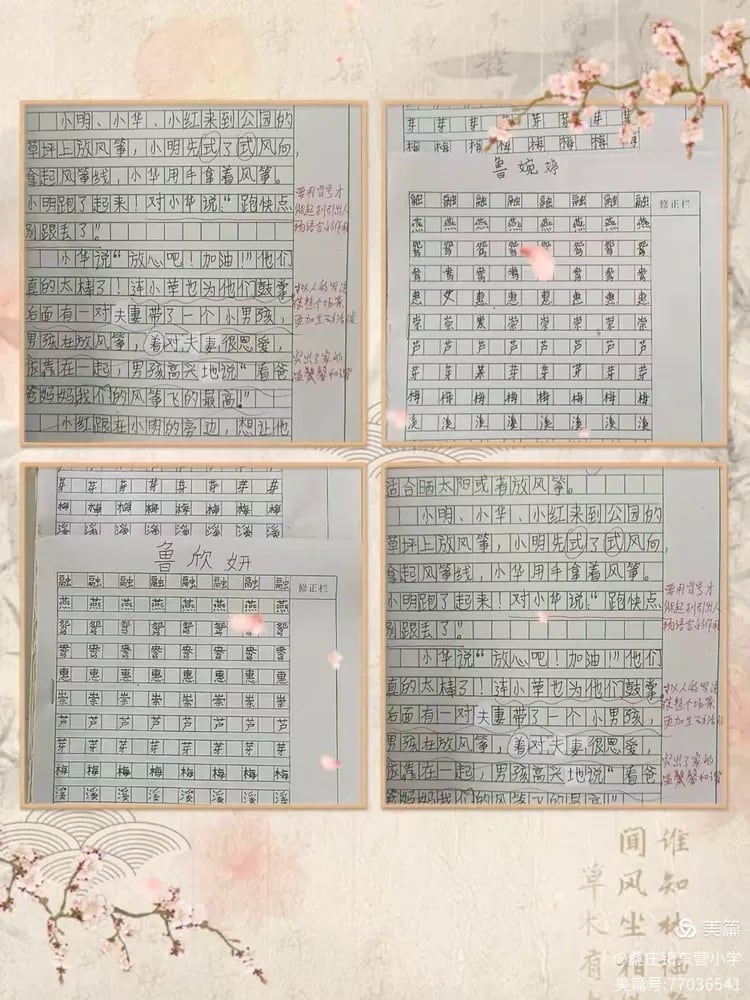 小明、小华、小红来到公园的
草坪上放风筝,小明先式了式风向,
拿起风筝线,小华用手拿着风筝。
小明跑了起来!对小华说:“跑快点
别跟丢了”。
小华说“放心吧!加油!”他们
真的太棒了!连小草也为他们鼓掌。
后面有一对夫妻带了一个小男孩,
男孩在放风筝,着对夫妻很恩爱,
依靠在一起,男孩高兴地说“看爸
爸妈妈我们的风筝飞的最高!”
小红跟在小明的旁边,想让他
要用冒号才
能起到引出人
物语言的作用
突出了家的
温馨和谐
芽 芽 芽 芽 芽 芽 芽
梅 梅 梅 梅 梅 梅 梅
鲁婉婷
融 融 融 融 融 融 融 融 修正栏
燕 燕 燕 燕 燕 燕 燕 燕
鸳 鸳 鸳 鸳 鸳 鸳 鸳
鸯 鸯 鸯 鸯 鸯 鸯 鸯 鸯
惠 惠 惠 惠 惠 惠 惠
崇 崇 崇 崇 崇 崇 崇 崇
芦 芦 芦 芦 芦 芦 芦 芦
芽 芽 芽 芽 芽 芽 芽 芽
梅 梅 梅 梅 梅 梅 梅 梅
溪 溪 溪 溪 溪 溪 溪 溪
芽 芽 芽 芽 芽 芽 芽 芽
梅 梅 梅 梅 梅 梅 梅 梅
溪 溪 溪 溪 溪 溪 溪 溪
鲁欣妍
融 融 融 融 融 融 融 融 修正栏
燕 燕 燕 燕 燕 燕 燕 燕
鸳 鸳 鸳 鸳 鸳 鸳 鸳 鸳
鸯 鸯 鸯 鸯 鸯 鸯 鸯 鸯
惠 惠 惠 惠 惠 惠 惠 惠
崇 崇 崇 崇 崇 崇 崇 崇
芦 芦 芦 芦 芦 芦 芦 芦
芽 芽 芽 芽 芽 芽 芽 芽
梅 梅 梅 梅 梅 梅 梅 梅
溪 溪 溪 溪 溪 溪 溪 溪
适合晒太阳或者放风筝。
小明、小华、小红来到公园的
草坪上放风筝,小明先式了式风向,
拿起风筝线,小华用手拿着风筝。
小明跑了起来!对小华说:“跑快点
别跟丢了”。
小华说“放心吧!加油!”他们
真的太棒了!连小草也为他们鼓掌。
后面有一对夫妻带了一个小男孩,
男孩在放风筝,着对夫妻很恩爱,
依靠在一起,男孩高兴地说“看爸
爸妈妈我们的风筝飞的最高!”
要用冒号才
能起到引出人
物语言的作用
突出了家的
温馨和谐
谁知林
闻风坐相
草木有
美篇
@桑庄镇东营小学
美篇号:77036541